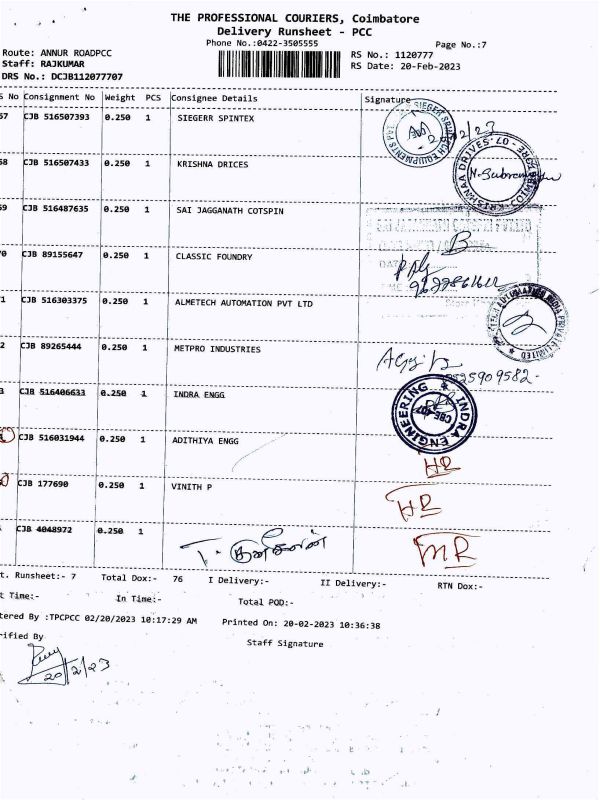 THE PROFESSIONAL COURIERS, Coimbatore
Delivery Runsheet - PCC
Phone No.:0422-3505555
Page No.:7
Route: ANNUR ROADPCC
RS No.: 1120777
Staff: RAJKUMAR
RS Date: 20-Feb-2023
DRS No.: DCJB112077707
S No Consignment No Weight PCS Consignee Details Signature
67 CJB 516507393 0.250 1 SIEGERR SPINTEX
68 CJB 516507433 0.250 1 KRISHNA DRICES
69 CJB 516487635 0.250 1 SAI JAGGANATH COTSPIN
70 CJB 89155647 0.250 1 CLASSIC FOUNDRY
1 CJB 516303375 0.250 1 ALMETECH AUTOMATION PVT LTD
2 CJB 89265444 0.250 1 METPRO INDUSTRIES
3 CJB 516406633 0.250 1 INDRA ENGG
INDRA ENGINEERING
CBE-407
CJB 516031944 0.250 1 ADITHIYA ENGG
HR
CJB 177690 0.250 1 VINITH P
HR
CJB 4048972 0.250 1
MR
t. Runsheet:- 7 Total Dox:- 76 I Delivery:- II Delivery:- RTN Dox:-
t Time:- In Time:- Total POD:-
tered By :TPCPCC 02/20/2023 10:17:29 AM Printed On: 20-02-2023 10:36:38
rified By
Staff Signature
20/2/23